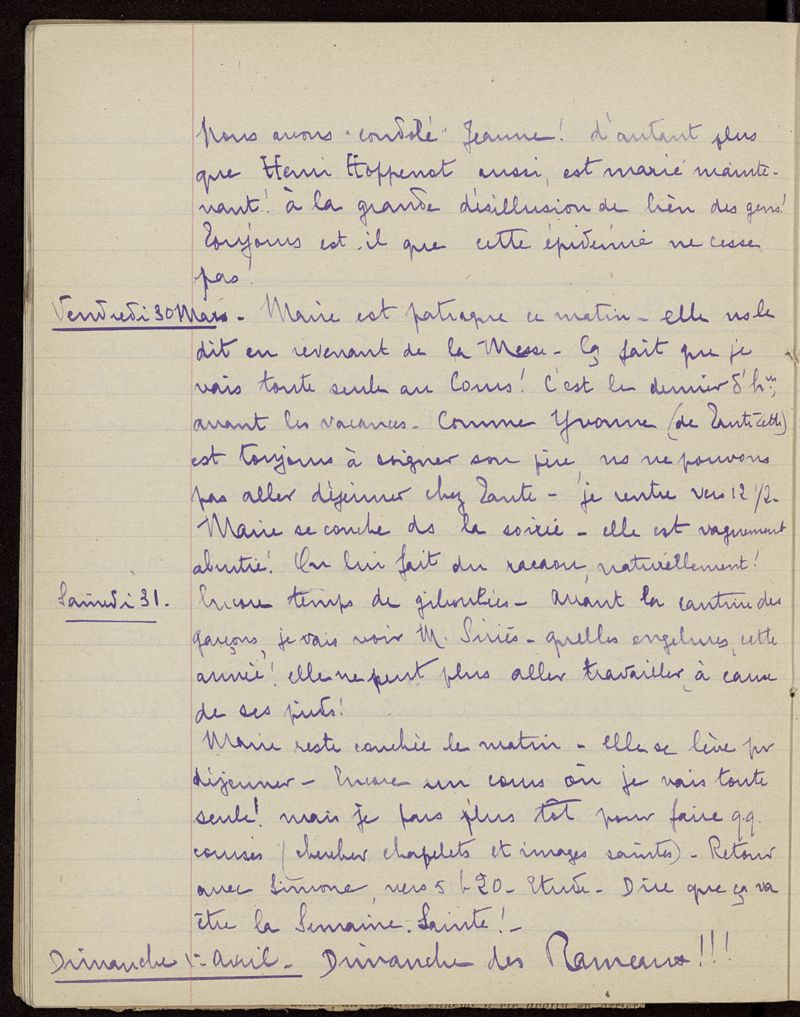 Nous avons "condolé" Jeanne! d'autant plus
que Henri Hoppenot aussi, est marié mainte-
nant! à la grande désillusion de bien des gens!
Toujours est-il que cette épidémie ne cesse
pas!
Vendredi 30 Mars - Marie est patraque ce matin - elle ns le
dit en revenant de la Messe - Ça fait que je
vais toute seule au Cours! C'est le dernier d'h
avant les vacances - Comme Yvonne (de Tante
est toujours à soigner son père, ns ne pouvons
pas aller déjeuner chez Tante - je rentre vers 12 1/2 -
Marie se couche ds la soirée - elle est vaguement
abrutie! On lui fait du racaou, naturellement!
Samedi 31. Encore temps de giboulées - Avant la cantine des
garçons, je vais voir M. Siriès - quelles engelures, cette
année! elle ne peut plus aller travailler, à cause
de ses pieds!
Marie reste couchée le matin - elle se lève pr
déjeuner - Encore un cours où je vais toute
seule! mais je pars plus tôt pour faire q.q.
courses (chercher chapelets et images saintes) - Retour
avec Simone, vers 5 h 20 - Etude - Dire que ça va
être la Semaine Sainte! -
Dimanche 1er Avril - Dimanche des Rameaux!!!